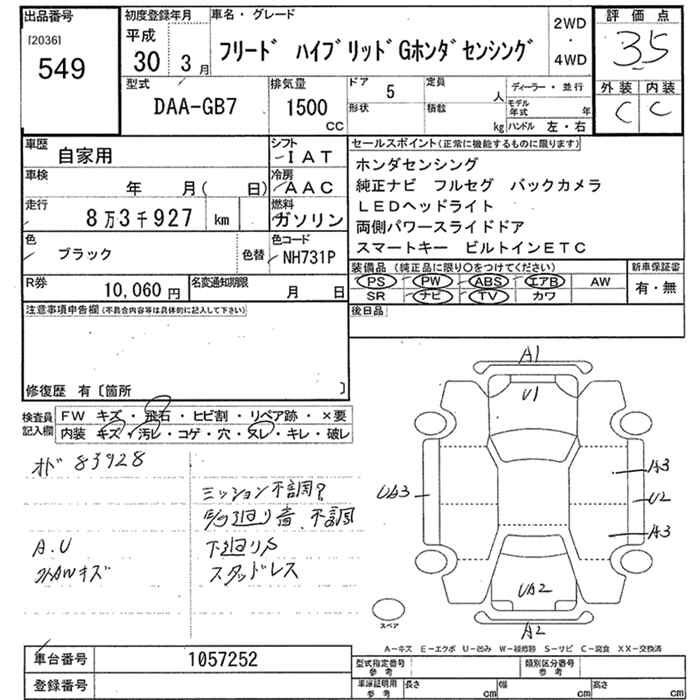 出品番号 初度登録年月 車名・グレード 2WD・4WD 評価点
[2036] 549 平成30年3月 フリード ハイブリッドGホンダセンシング 3.5
型式 排気量 ドア 5 定員 人 ディーラー・並行 外装 内装
DAA-GB7 1500 CC 形状 積数 kg モデル年式 年 C C
ハンドル 左・右
車歴 自家用 シフト IAT セールスポイント(正常に機能するものに限ります)
車検 年 月( 日) 冷房 AAC ホンダセンシング
純正ナビ フルセグ バックカメラ
走行 8万3千927 km 燃料 ガソリン LEDヘッドライト
両側パワースライドドア
色 ブラック 色替 色コード NH731P スマートキー ビルトインETC
R券 10,060円 名変通知期限 月 日 装備品(純正品に限り○をつけてください) 新車保証書
PS PW ABS エアB AW 有・無
SR ナビ TV カワ
注意事項申告欄(不具合内容等は具体的に記入して下さい) 後日品
修復歴 有〔箇所 〕
検査員記入欄 FW キズ・飛石・ヒビ割・リペア跡・×要
内装 キズ・汚レ・コゲ・穴・スレ・キレ・破レ
オド 83928
ミッション不調?
廻り音、不調
A.U 下廻りS
外AWキズ スタッドレス
A1
U1
A3
UA3 U2
A3
UA2
A2
スペア
A-キズ E-エクボ U-凹み W-補修跡 S-サビ C-腐食 XX-交換済
車台番号 1057252 型式指定番号 参考 類別区分番号 参考
登録番号 車庫証明用 参考 長さ cm 幅 cm 高さ cm